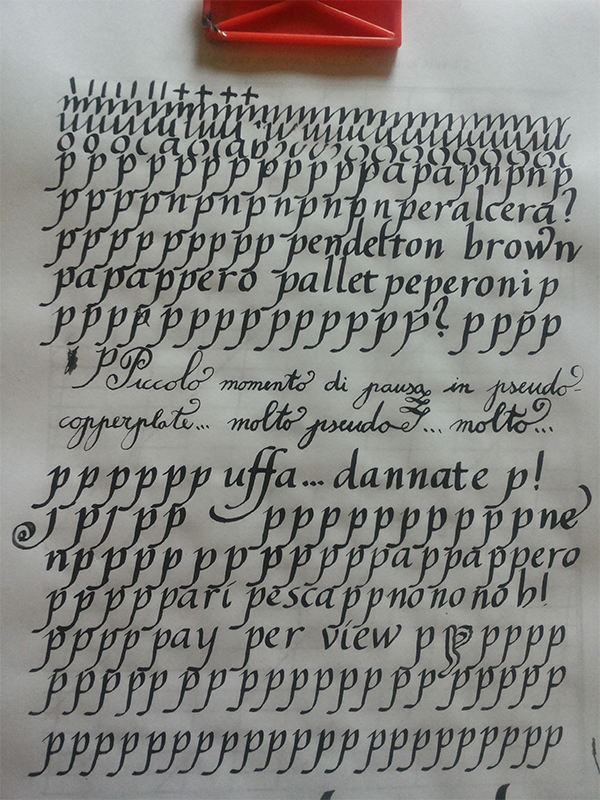 p p p p p p p p p p p p p a p a p n p n p
p p p p n p n p n p n p n peralcera?
p p p p p p p p p pendelton brown
papappero pallet peperoni p
p p p p p p p p p p p p p p p? p p p p
p Piccolo momento di pausa in pseudo-
copperplate... molto pseudo... molto...
p p p p p p uffa... dannate p!
p p p p p p p p p p p ne
n p p p p p p p p p p p pappappero
p p p p ppari pescappnononoh!
p p p p pay per view p p p p p p
p p p p p p p p p p p p p p p p p p p
p p p p p p p p p p p p p p p p p p p p p